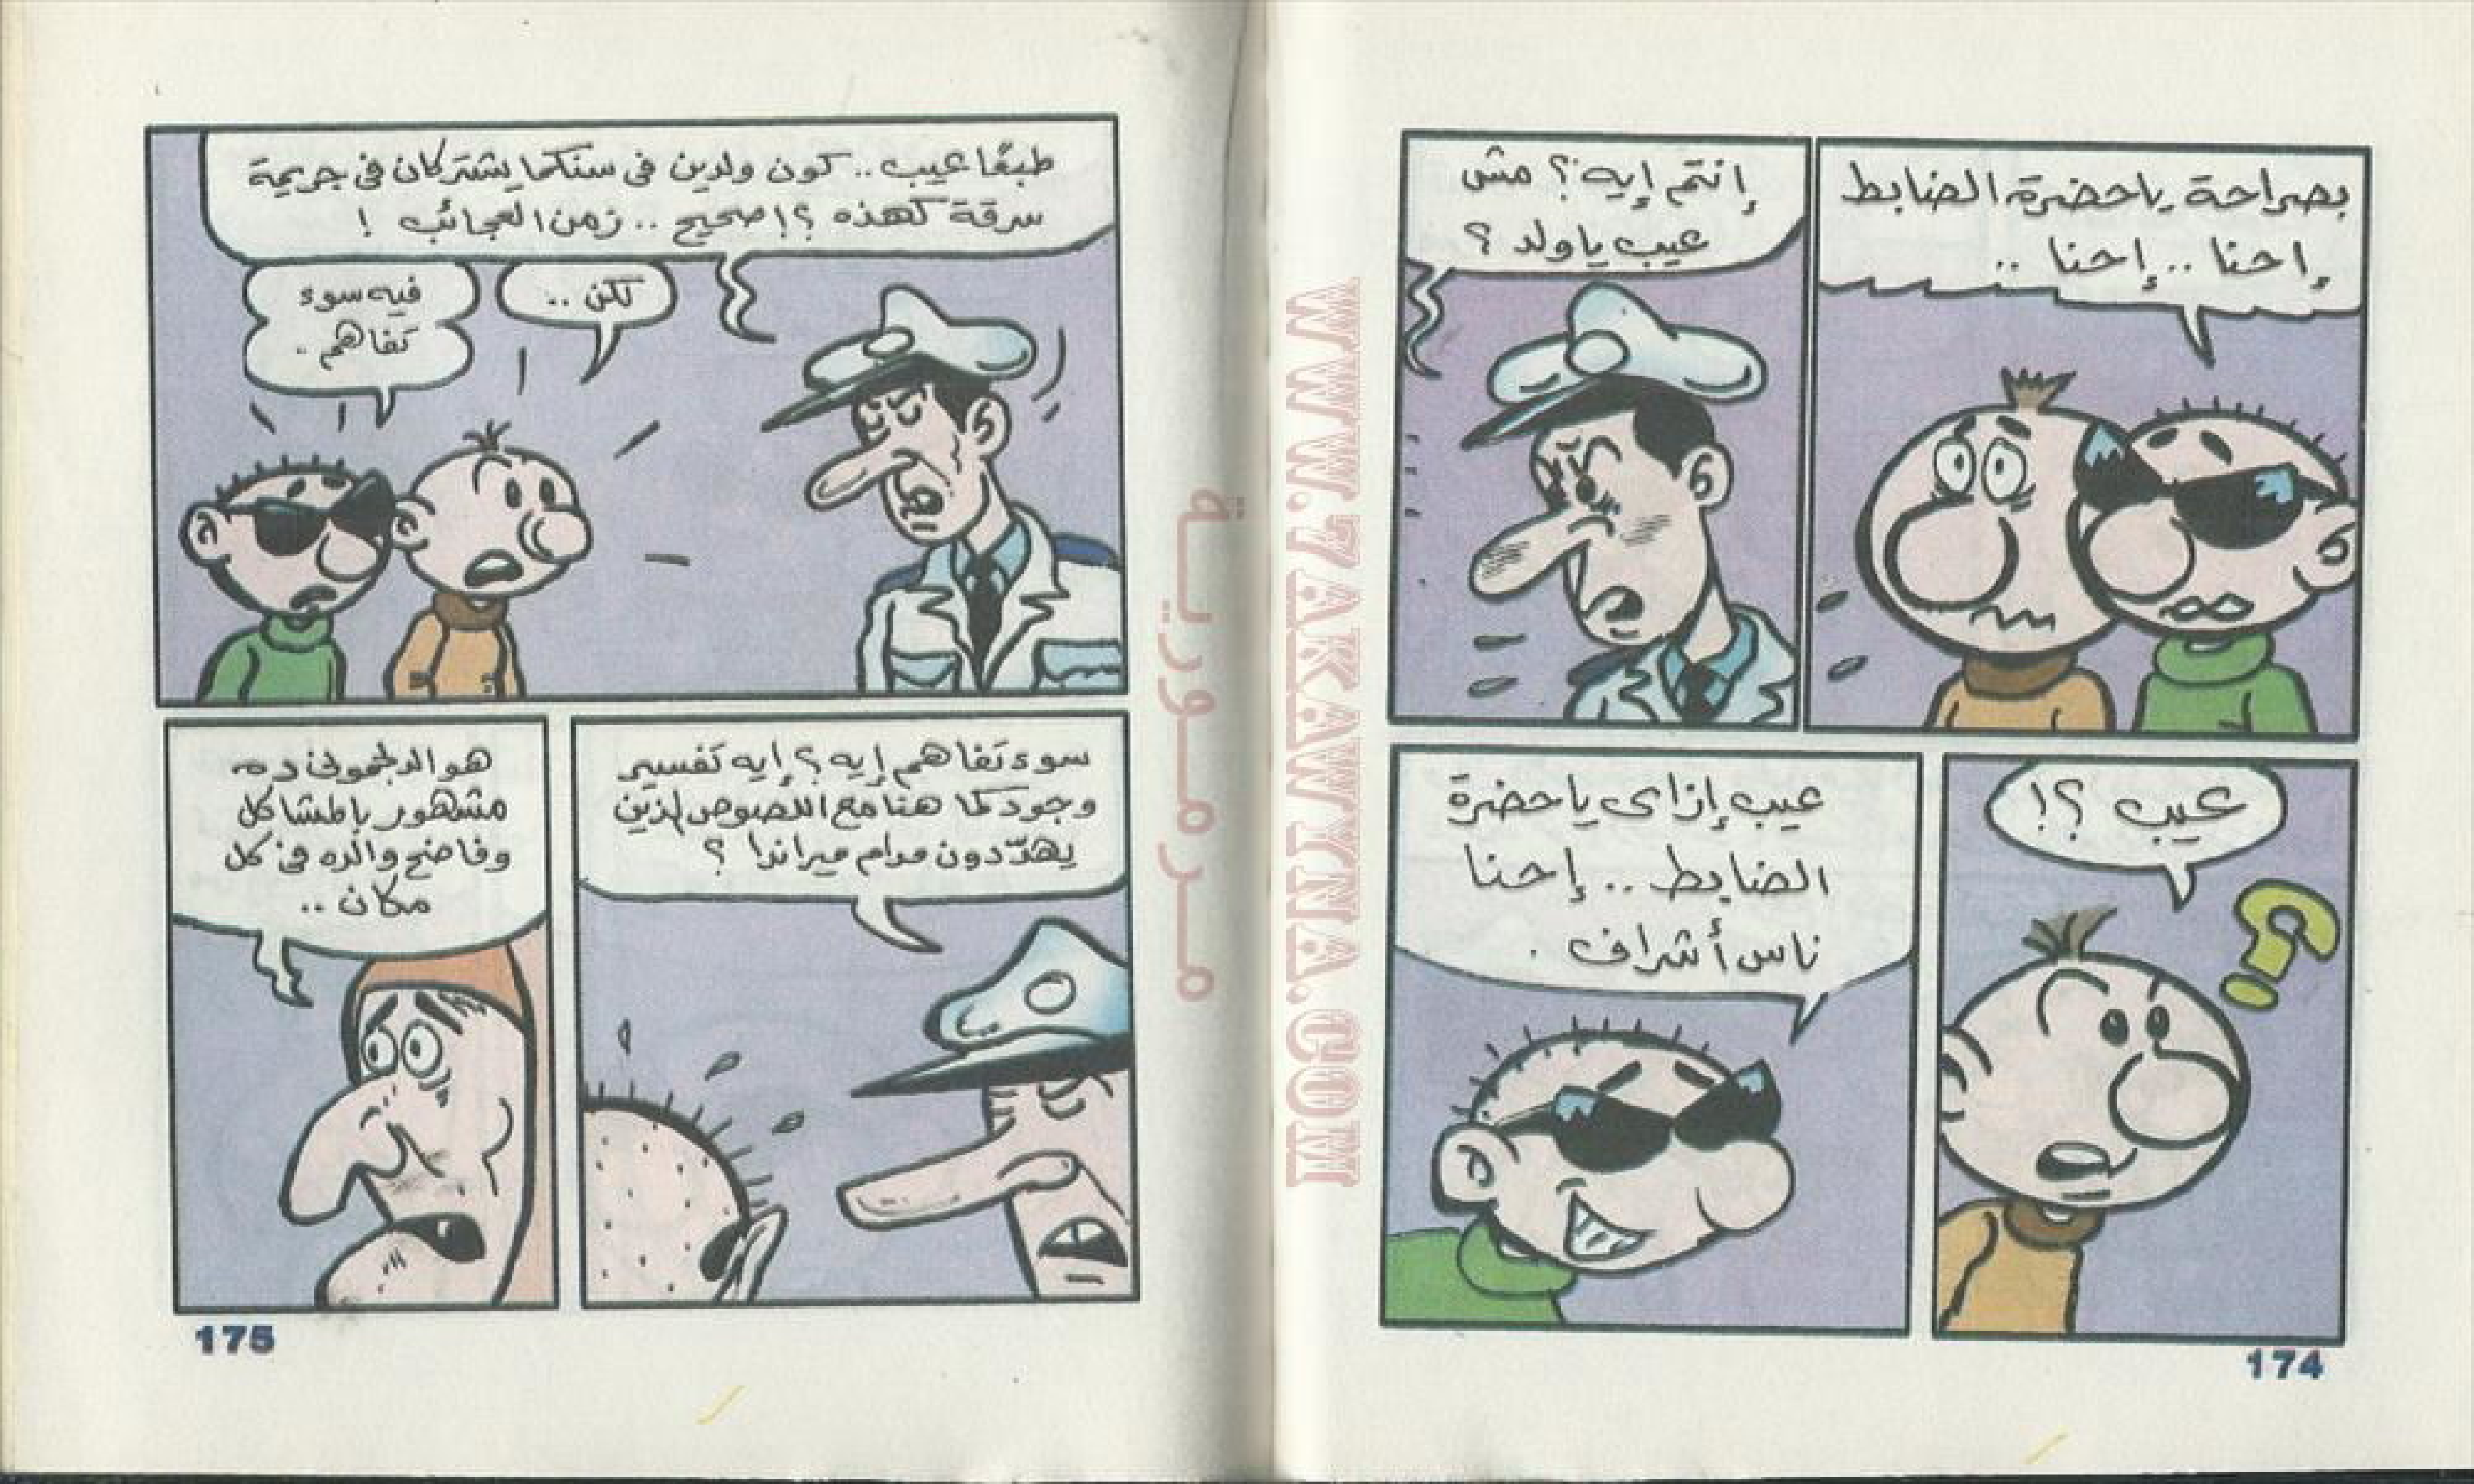 بصراحة ياحضرة الضابط
إحنا .. إحنا ..
إنتم إيه؟ مش
عيب ياولد ؟
عيب ؟!
عيب إزاى ياحضرة
الضابط .. إحنا
ناس أشراف .
174
طبعًا عيب .. كون ولدين فى سنكما يشتركان فى جريمة
سرقة كهذه ؟! صحيح .. زمن العجائب !
لكن ..
فيه سوء
تفاهم .
سوء تفاهم إيه ؟ إيه تفسير
وجودكما هنا مع اللصوص الذين
يهدّدون مدام ميراندا ؟
هو الدلجمونى ده
مشهور بالمشاكل
وفاضح والده فى كل
مكان ..
175
مرمورية
WWW.7AKAWYNA.COM